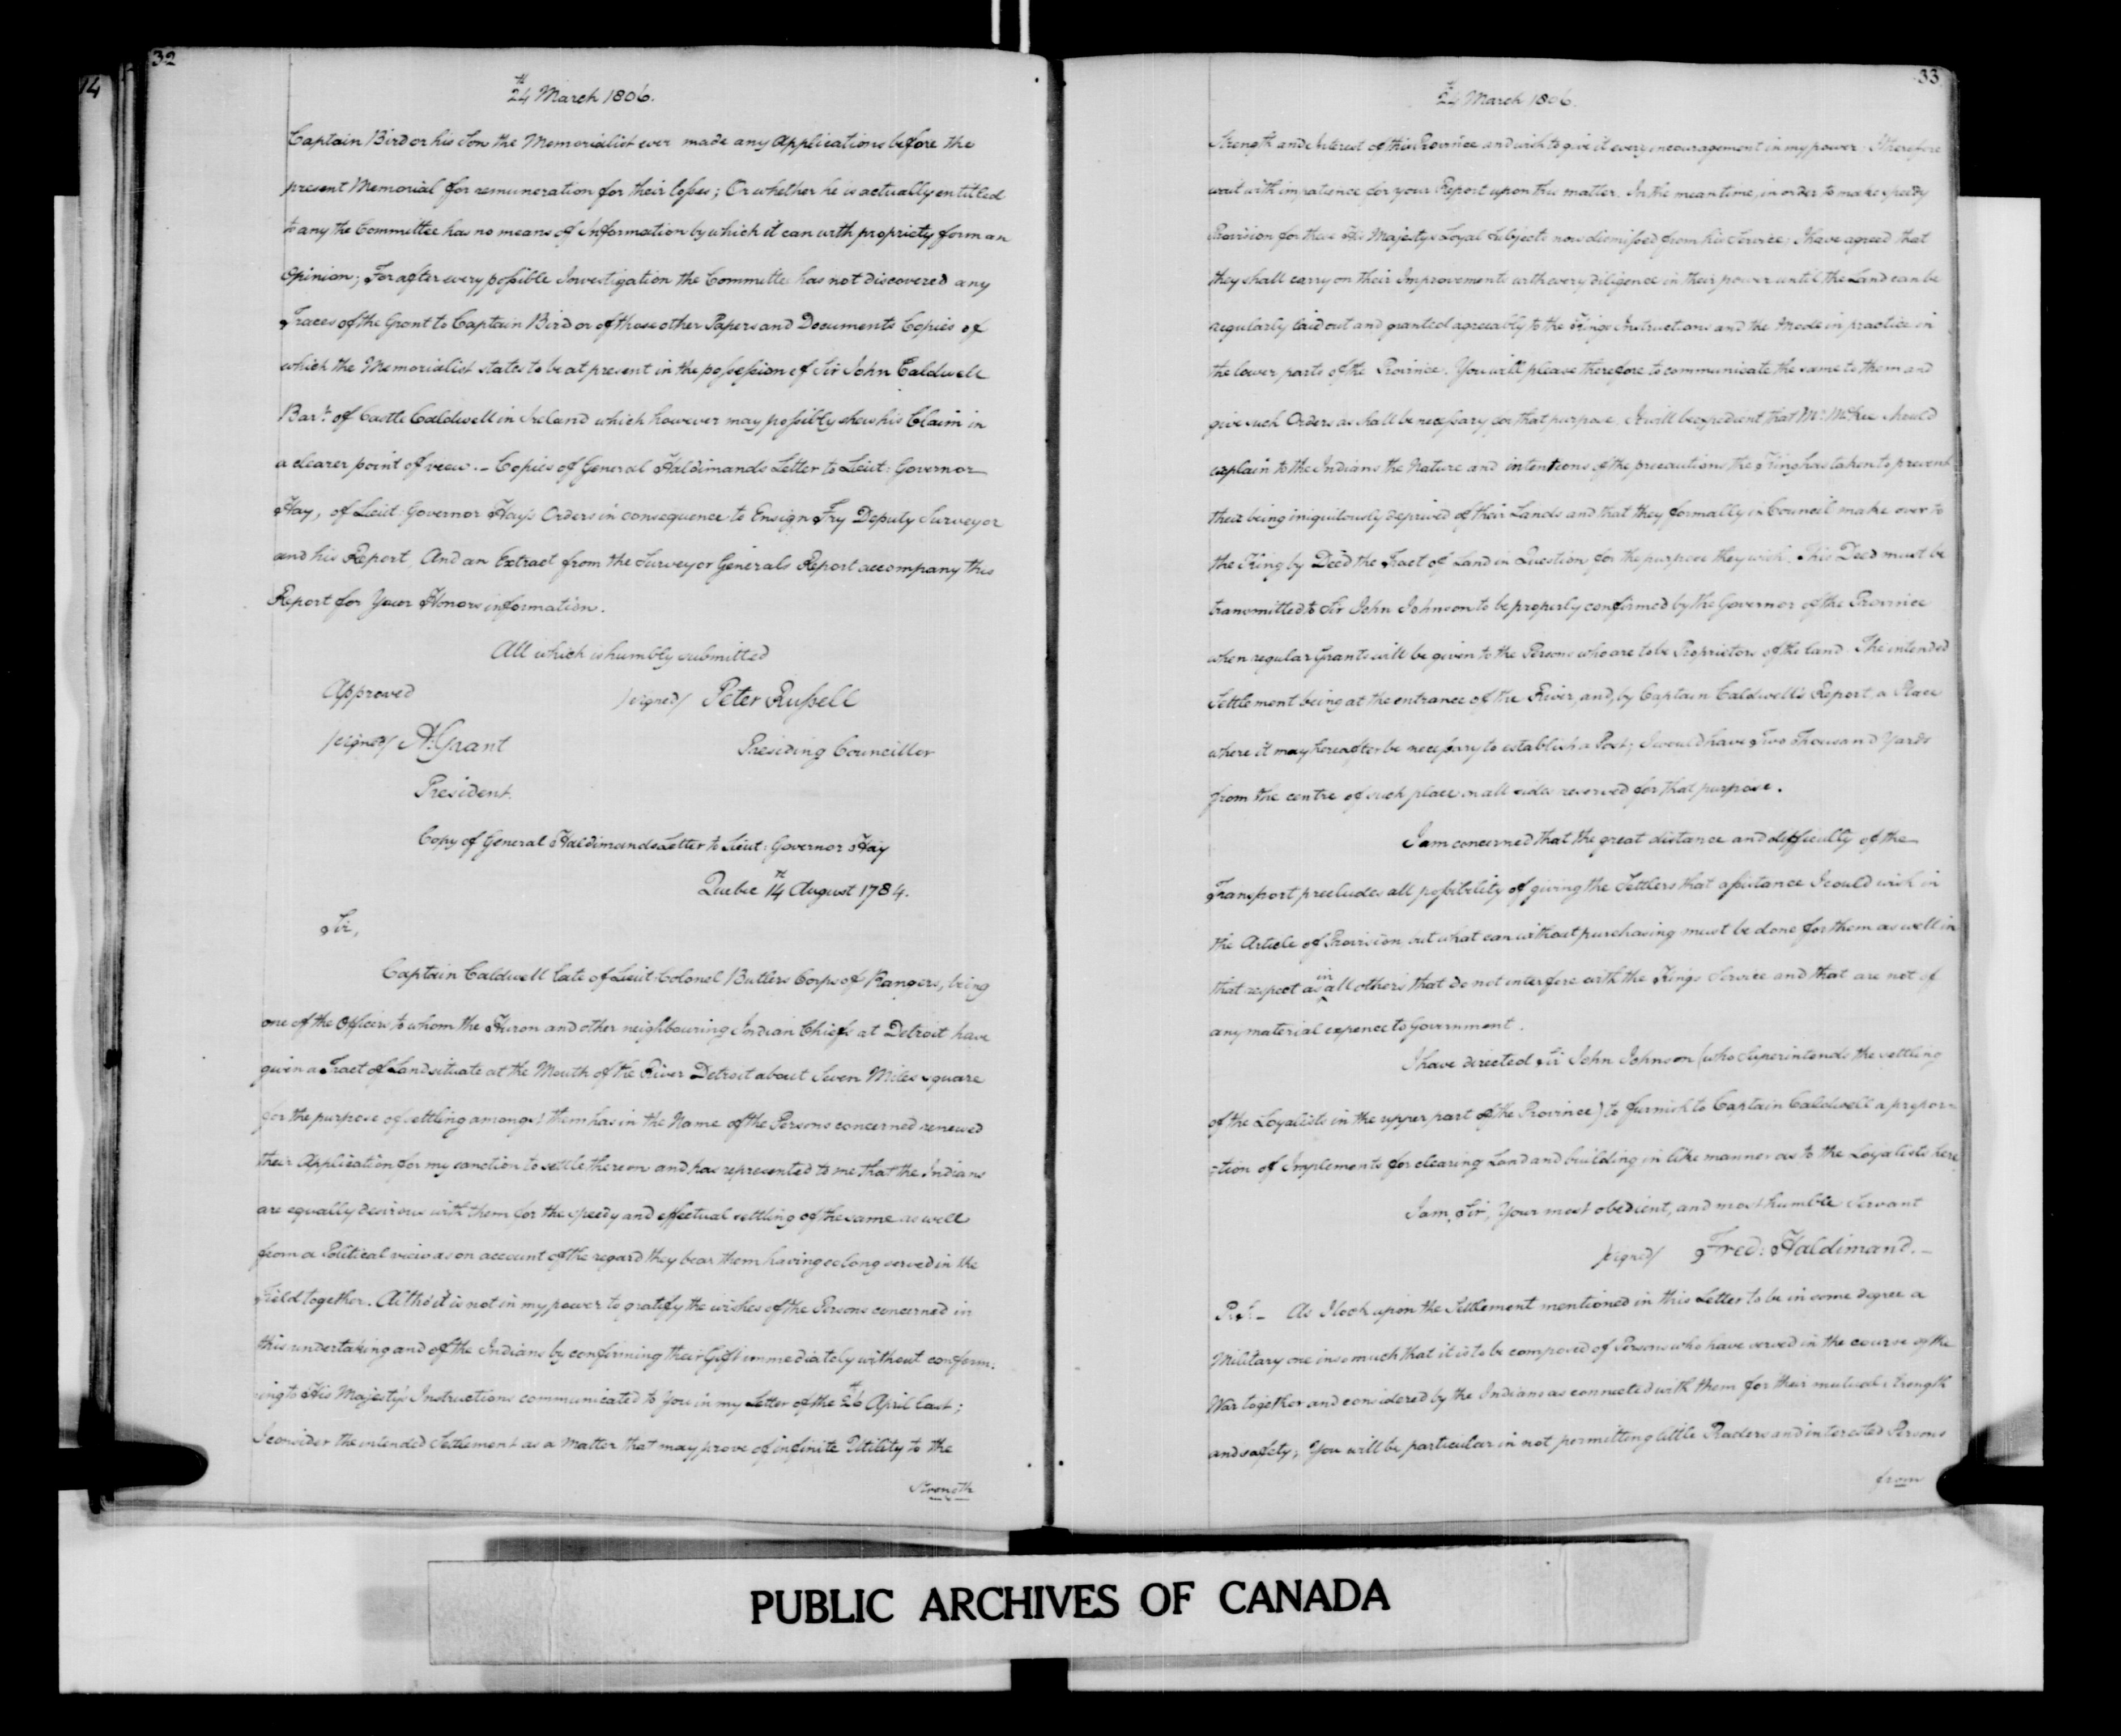 14
32
24th March 1806.
Captain Bird or his Son the Memorialist ever made any Applications before the
present Memorial for remuneration for their losses; Or whether he is actually entitled
to any the Committee has no means of Information by which it can with propriety form an
Opinion; For after every possible Investigation the Committee has not discovered any
Traces of the Grant to Captain Bird or of those other Papers and Documents Copies of
which the Memorialist states to be at present in the possession of Sir John Caldwell
Bart. of Castle Caldwell in Ireland which however may possibly shew his Claim in
a clearer point of view. — Copies of General Haldimands Letter to Lieut: Governor
Hay, of Lieut: Governor Hay's Orders in consequence to Ensign Fry Deputy Surveyor
and his Report. And an Extract from the Surveyor Generals Report accompany this
Report for Your Honors information.
All which is humbly submitted
Approved /signed/ Peter Russell
/signed/ A: Grant Presiding Councillor
President.
Copy of General Haldimands Letter to Lieut: Governor Hay
Quebec 14th August 1784.
Sir,
Captain Caldwell late of Lieut: Colonel Butlers Corps of Rangers, being
one of the Officers to whom the Huron and other neighbouring Indian Chiefs at Detroit have
given a Tract of Land situate at the Mouth of the River Detroit about Seven Miles square
for the purpose of settling amongst them has in the Name of the Persons concerned renewed
their Application for my sanction to settle thereon and has represented to me that the Indians
are equally desirous with them for the speedy and effectual settling of the same as well
from a Political view as on account of the regard they bear them having so long served in the
Field together. Altho' it is not in my power to gratify the wishes of the Persons concerned in
this undertaking and of the Indians by confirming their Gift immediately without conform:
ing to His Majesty's Instructions communicated to You in my Letter of the 26th April last;
I consider the intended Settlement as a Matter that may prove of infinite Utility to the
Strength
33
24th March 1806.
Strength and Interest of this Province and wish to give it every encouragement in my power. I therefore
wait with impatience for your Report upon this matter. In the mean time, in order to make speedy
Provision for these His Majestys Loyal Subjects now dismissed from his Service, I have agreed that
they shall carry on their Improvements with every diligence in their power until the Land can be
regularly laid out and granted agreeably to the Kings Instructions and the Mode in practice in
the lower parts of the Province. You will please therefore to communicate the same to them and
give such Orders as shall be necessary for that purpose. It will be expedient that Mr. McKee should
explain to the Indians the Nature and intentions of the precautions the King has taken to prevent
their being iniquitously deprived of their Lands and that they formally in Council make over to
the King by Deed the Tract of Land in Question for the purpose they wish. This Deed must be
transmitted to Sir John Johnson to be properly confirmed by the Governor of the Province
when regular Grants will be given to the Persons who are to be Proprietors of the land. The intended
Settlement being at the entrance of the River, and, by Captain Caldwell's Report, a Place
where it may hereafter be necessary to establish a Post; I would have Two Thousand Yards
from the centre of such place on all sides reserved for that purpose.
I am concerned that the great distance and difficulty of the
Transport precludes all possibility of giving the Settlers that assistance I could wish in
the Article of Provision but what can without purchasing must be done for them as well in
that respect as in all others that do not interfere with the Kings Service and that are not of
any material expence to Government.
I have directed Sir John Johnson (who Superintends the settling
of the Loyalists in the upper part of the Province) to furnish to Captain Caldwell a propor=
=tion of Implements for clearing Land and building in like manner as to the Loyalists here.
I am, Sir, Your most obedient, and most humble Servant
/signed/ Fred: Haldimand. —
P.S: — As I look upon the Settlement mentioned in this Letter to be in some degree a
Military one insomuch that it is to be composed of Persons who have served in the course of the
War together and considered by the Indians as connected with them for their mutual strength
and safety; You will be particular in not permitting little Traders and interested Persons
from
PUBLIC ARCHIVES OF CANADA